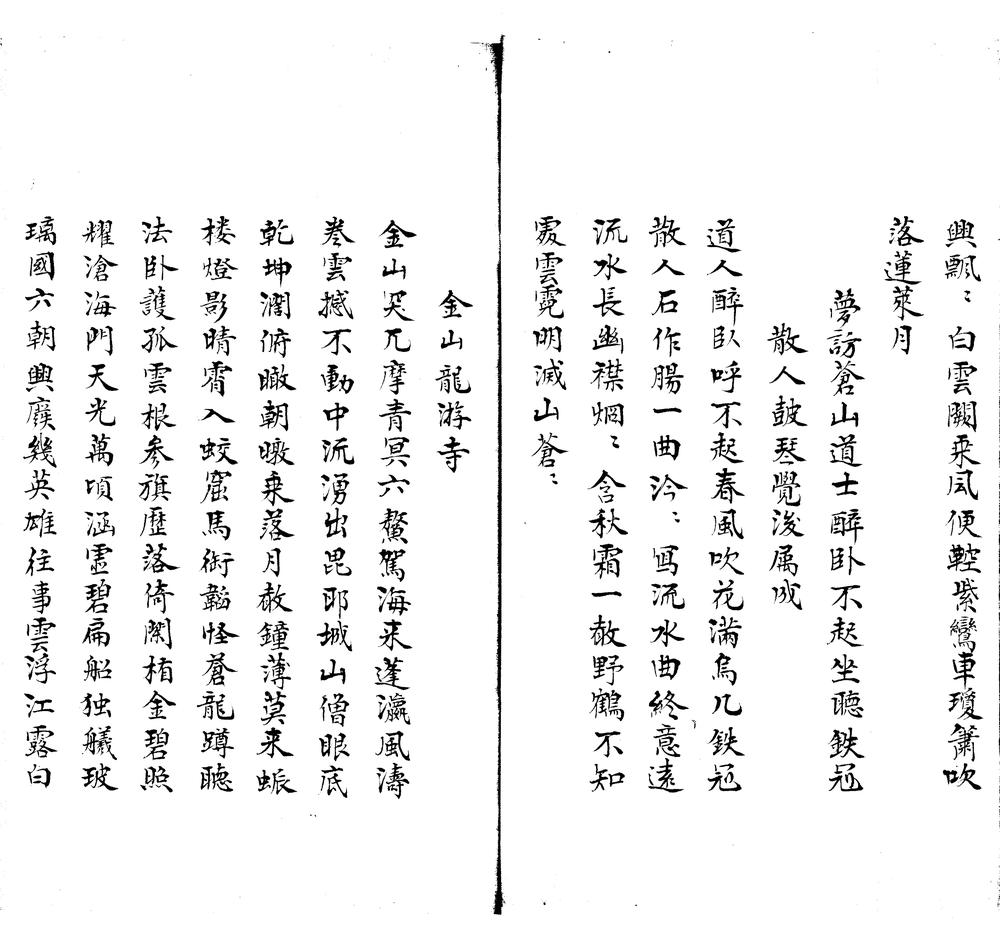 興飄〻白雲闕乗凨便鞚紫鸞車瓊簫吹
落蓬萊月
夢訪蒼山道士醉卧不起坐聽鉄冠
散人鼓琴覺後属成
道人醉臥呼不起春風吹花滿烏几鉄冠
散人石作腸一曲泠〻寫流水曲終意遠
流水長幽襟烱〻含秋霜一敲野鶴不知
處雲霓明滅山蒼〻
金山龍游寺
金山突兀摩青冥六鰲駕海来蓬瀛風濤
卷雲撼不動中流湧出毘耶城山僧眼底
乾坤濶俯瞰朝暾乗落月敲鐘薄莫来蜧
楼燈影晴霄入蛟窟馬銜韜怪蒼龍蹲聽
法卧護孤雲根参旗歷落倚闌楯金碧照
耀滄海門天光萬頃涵靈碧扁船独艤玻
璃國六朝興廢幾英雄往事雲浮江露白